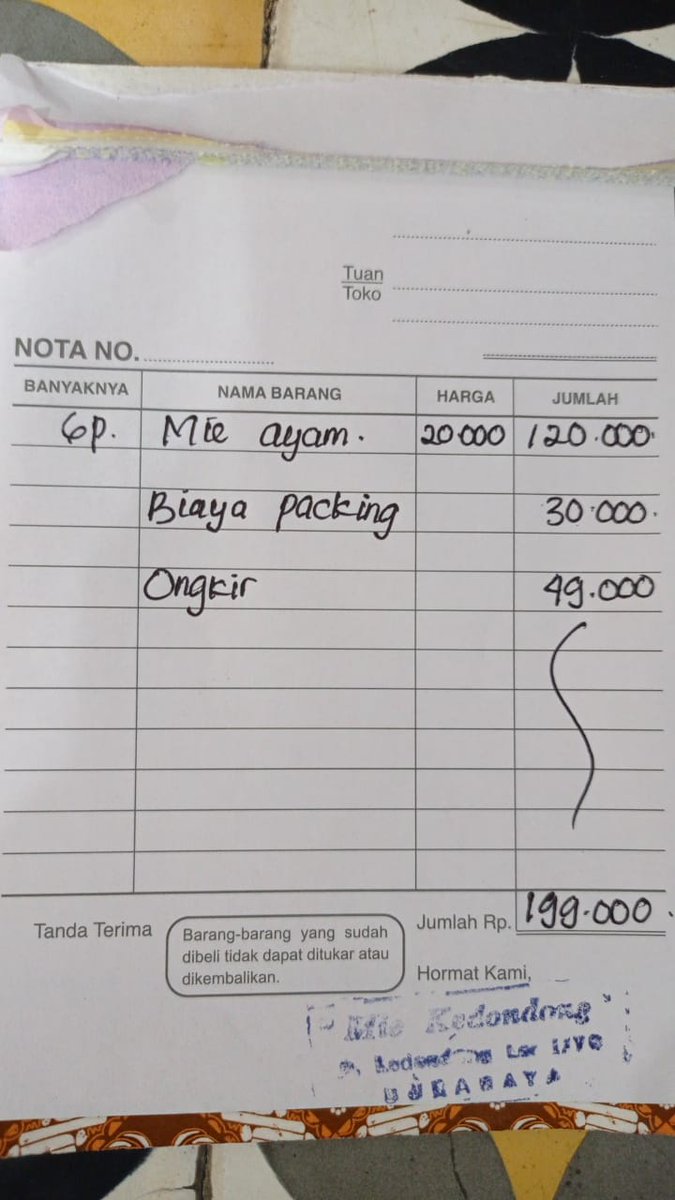 Tuan
Toko
NOTA NO.
BANYAKNYA NAMA BARANG HARGA JUMLAH
6p. Mie ayam. 20.000 120.000.
Biaya packing 30.000.
Ongkir 49.000
Jumlah Rp. 199.000.
Tanda Terima
Barang-barang yang sudah
dibeli tidak dapat ditukar atau
dikembalikan.
Hormat Kami,
Mie Kedondong
Kedondong Lor
SURABAYA